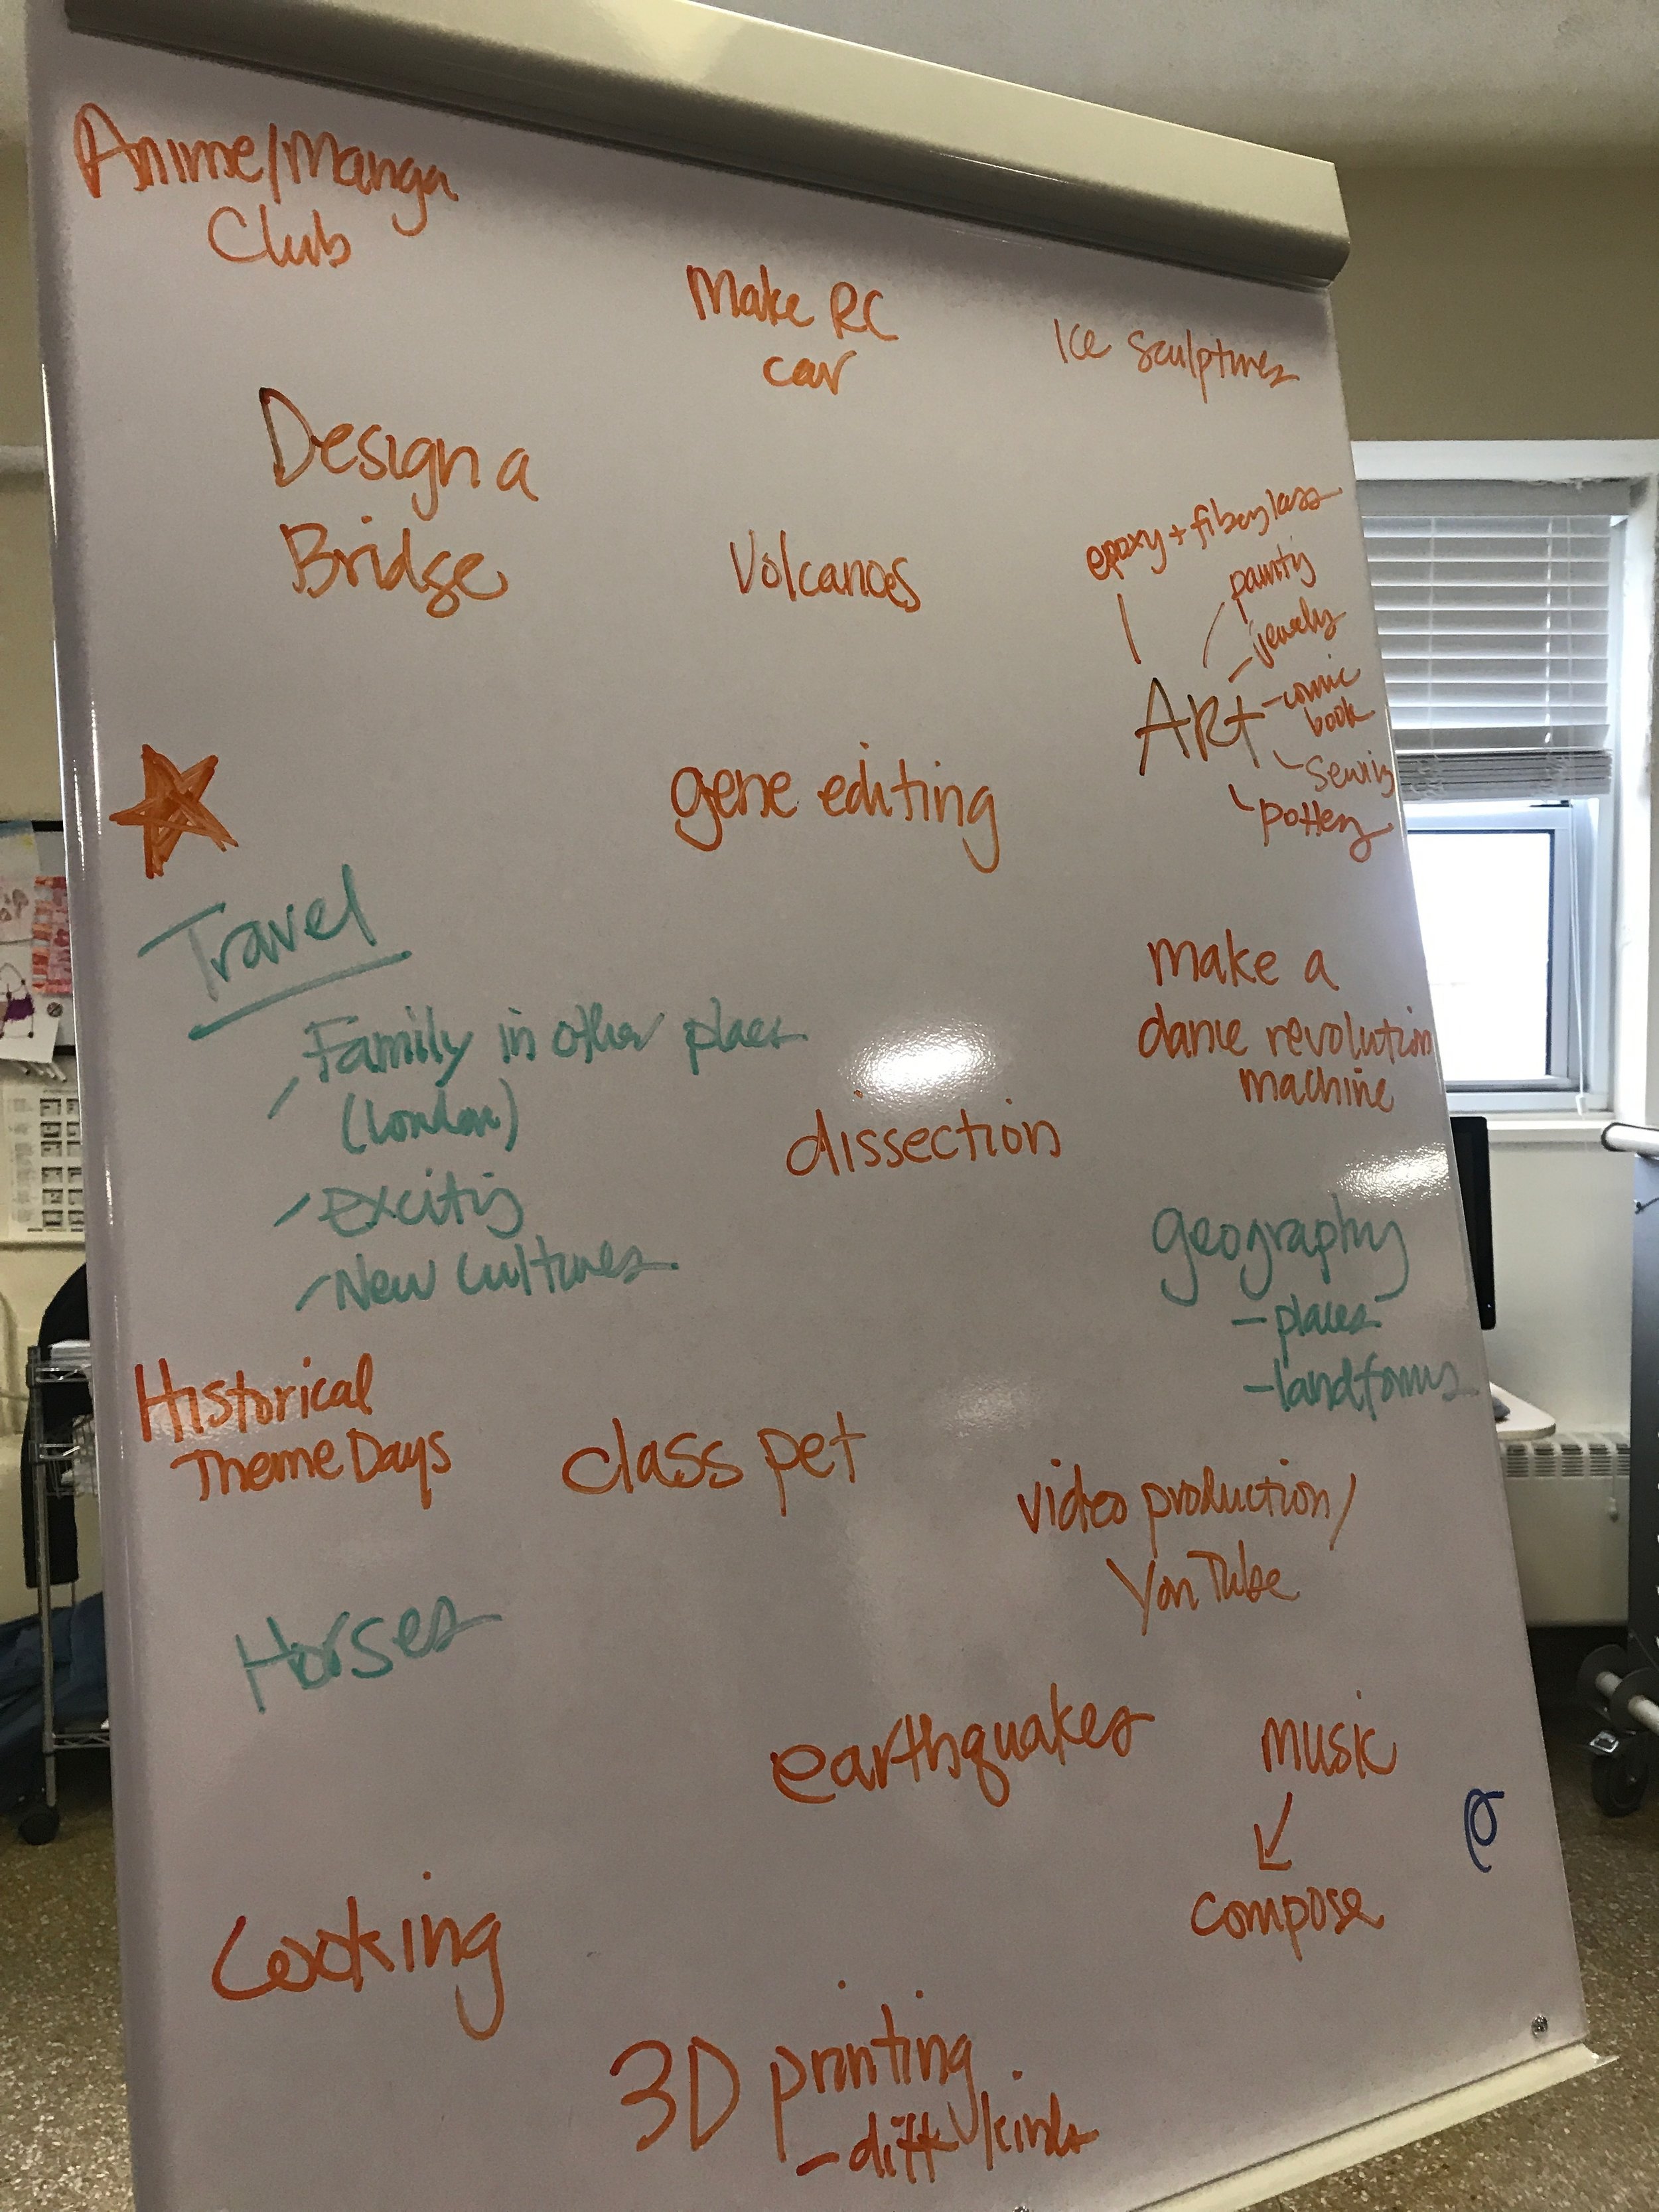 Anime/Manga
Club
Make RC
car
Ice sculptures
Design a
Bridge
Volcanoes
epoxy + fiberglass
painting
jewelry
ART
-comic
book
sewing
pottery
gene editing
Travel
-Family in other places
(London)
-Exciting
-New Cultures
make a
dance revolution
machine
dissection
geography
- places
-landforms
Historical
Theme Days
class pet
video production/
YouTube
Horses
earthquakes
music
compose
Cooking
3D printing
-diff. kinds